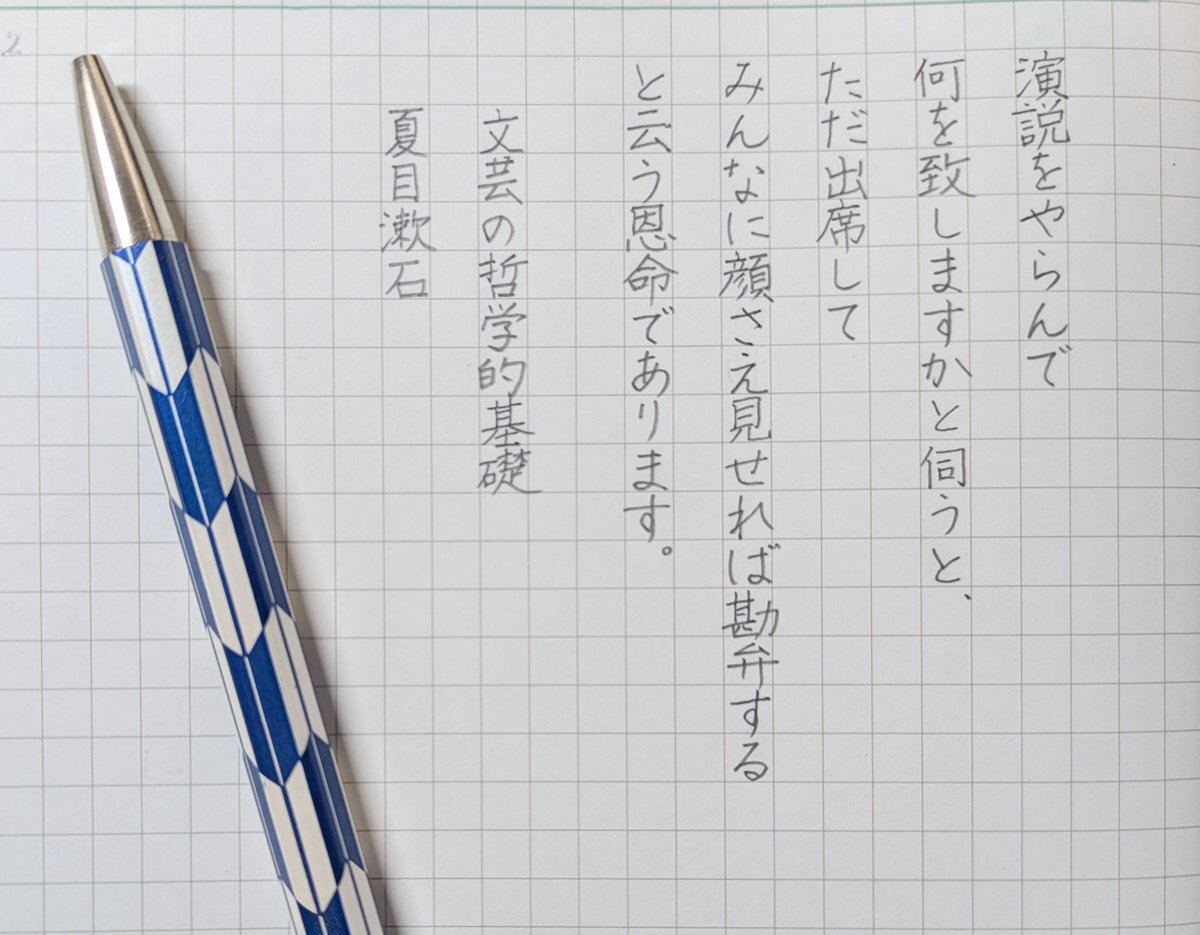 演説をやらんで
何を致しますかと伺うと、
ただ出席して
みんなに顔さえ見せれば勘弁する
と云う恩命であります。
文芸の哲学的基礎
夏目漱石
2